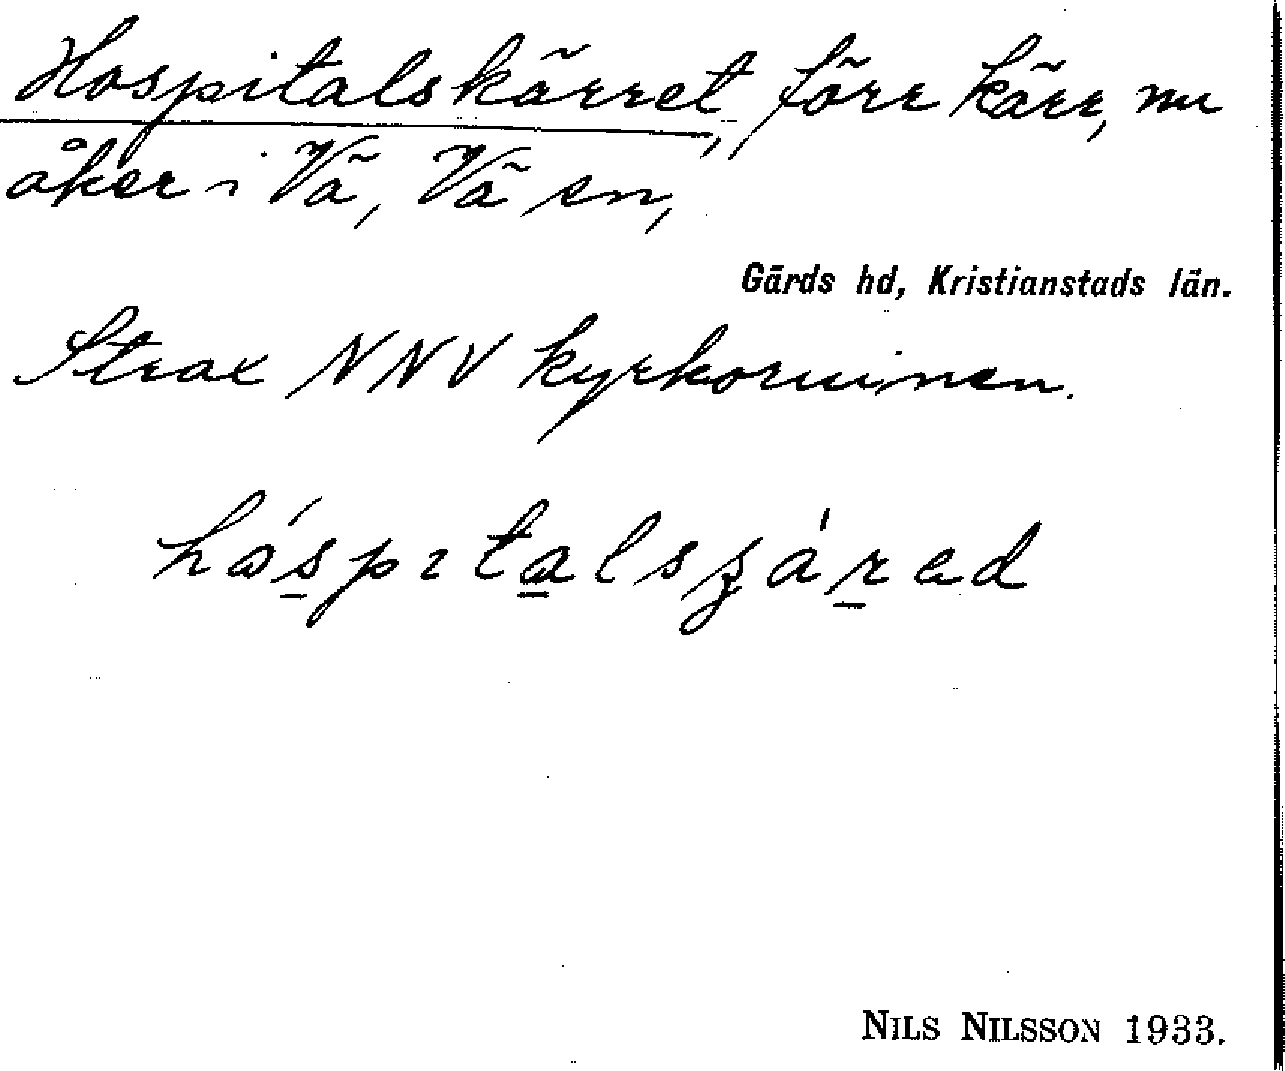 Hospitalskärret, förr kärr, nu
åker i Vä, Vä sn,
Gärds hd, Kristianstads län.
Strax NNV kyrkoruinen.
hóspıtalsʒárad
NILS NILSSON 1933.